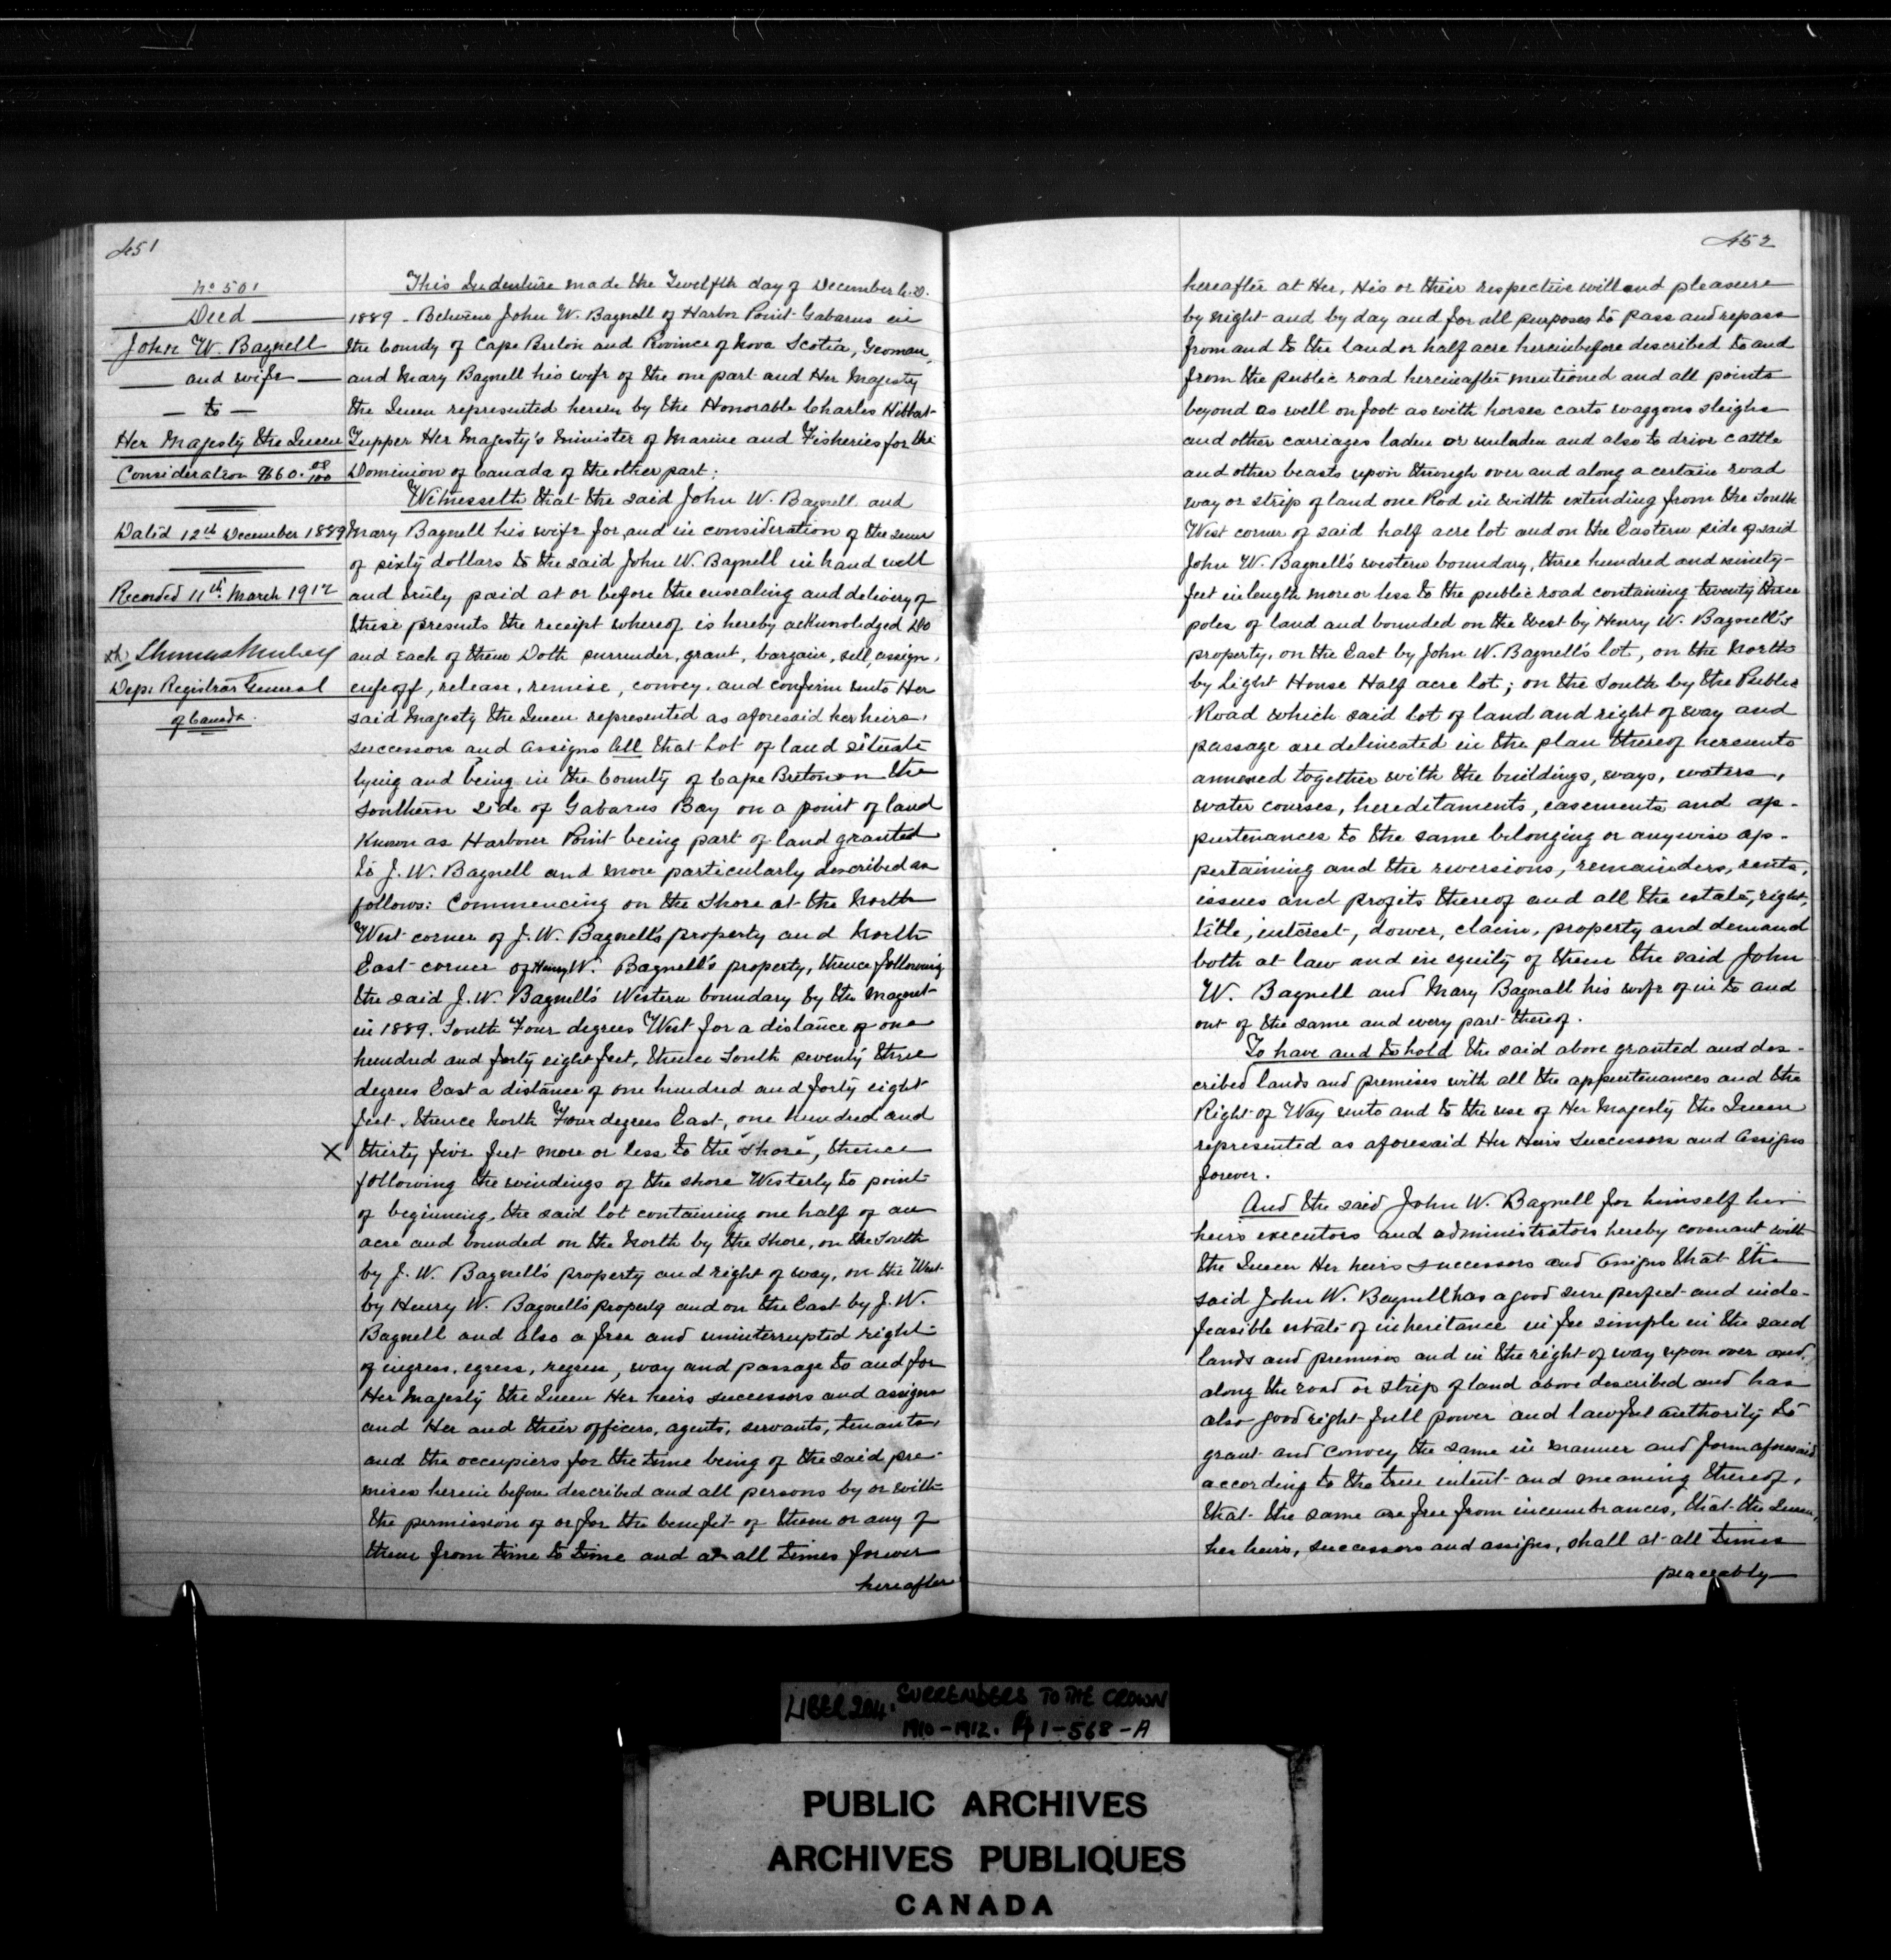 451
No 501
Deed
John W. Bagnell
and wife
— to —
Her Majesty the Queen
Consideration $60.00/100
Dated 12th December 1889
Recorded 11th March 1912
Dep: Registrar General
of Canada.
This Indenture made the Twelfth day of December A.D.
1889 - Between John W. Bagnell of Harbor Point Gabarus in
the County of Cape Breton and Province of Nova Scotia, Yeoman,
and Mary Bagnell his wife of the one part and Her Majesty
the Queen represented herein by the Honorable Charles Hibbert
Tupper Her Majesty's Minister of Marine and Fisheries for the
Dominion of Canada of the other part:
Witnesseth that the said John W. Bagnell and
Mary Bagnell his wife for and in consideration of the sum
of sixty dollars to the said John W. Bagnell in hand well
and truly paid at or before the ensealing and delivery of
these presents the receipt whereof is hereby acknowledged Do
and Each of them Doth surrender, grant, bargain, sell, assign,
enfeoff, release, remise, convey, and confirm unto Her
said Majesty the Queen represented as aforesaid her heirs,
successors and assigns All that Lot of land situate
lying and being in the County of Cape Breton on the
Southern side of Gabarus Bay on a point of land
Known as Harbour Point being part of land granted
to J. W. Bagnell and more particularly described as
follows: Commencing on the Shore at the North
West corner of J. W. Bagnell's property and North
East corner of Henry W. Bagnell's property, thence following
the said J. W. Bagnell's Western boundary by the magnet
in 1889. South Four degrees West for a distance of one
hundred and forty eight feet, thence South seventy three
degrees East a distance of one hundred and forty eight
feet, thence North Four degrees East, one hundred and
X thirty five feet more or less to the "Shore", thence
following the windings of the shore Westerly to point
of beginning, the said lot containing one half of an
acre and bounded on the North by the Shore, on the South
by J. W. Bagnell's property and right of way, on the West
by Henry W. Bagnell's property and on the East by J. W.
Bagnell and also a free and uninterrupted right
of ingress, egress, regress, way and passage to and for
Her Majesty the Queen Her heirs successors and assigns
and Her and their officers, agents, servants, tenants,
and the occupiers for the time being of the said pre-
mises herein before described and all persons by or with
the permission of or for the benefit of them or any of
them from time to time and at all times forever
hereafter
452
hereafter at Her, His or their respective will and pleasure
by night and by day and for all purposes to pass and repass
from and to the land or half acre hereinbefore described to and
from the public road hereinafter mentioned and all points
beyond as well on foot as with horses carts waggons sleighs
and other carriages laden or unladen and also to drive cattle
and other beasts upon through over and along a certain road
way or strip of land one Rod in width extending from the South
West corner of said half acre lot and on the Eastern side of said
John W. Bagnell's western boundary, three hundred and ninety-
feet in length more or less to the public road containing twenty three
poles of land and bounded on the West by Henry W. Bagnell's
property, on the East by John W. Bagnell's lot, on the North
by Light House Half acre lot; on the South by the Public
Road which said lot of land and right of way and
passage are delineated in the plan thereof hereunto
annexed together with the buildings, ways, waters,
water courses, hereditaments, easements and ap-
purtenances to the same belonging or anywise ap-
pertaining and the reversions, remainders, rents,
issues and profits thereof and all the estate, right,
title, interest, dower, claim, property and demand
both at law and in equity of them the said John
W. Bagnell and Mary Bagnall his wife of in to and
out of the same and every part thereof.
To have and to hold the said above granted and des-
cribed lands and premises with all the appurtenances and the
Right of Way unto and to the use of Her Majesty the Queen
represented as aforesaid Her Heirs Successors and Assigns
forever.
And the said John W. Bagnell for himself his
heirs executors and administrators hereby covenant with
the Queen Her heirs successors and Assigns that the
said John W. Bagnell has a good sure perfect and inde-
feasible estate of inheritance in fee simple in the said
lands and premises and in the right of way upon over and
along the road or strip of land above described and has
also good right full power and lawful authority to
grant and convey the same in manner and form aforesaid
according to the true intent and meaning thereof,
that the same are free from incumbrances, that the Queen,
her heirs, successors and assigns, shall at all times
peaceably
LIBER 204. SURRENDERS TO THE CROWN
1910-1912. Pp 1-568-A
PUBLIC ARCHIVES
ARCHIVES PUBLIQUES
CANADA